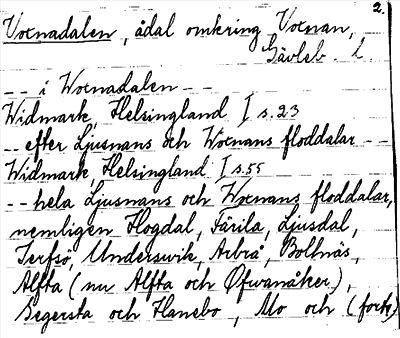 2.
Voxnadalen, ådal omkring Voxnan,
Gävleb. L.
-- i Woxnadalen --
Widmark, Helsingland I s. 23
-- efter Ljusnans och Woxnans floddalar --
Widmark, Helsingland I s. 55
-- hela Ljusnans och Woxnans floddalar,
nemligen Hogdal, Färila, Ljusdal,
Jerfsö, Undersvik, Arbrå, Bollnäs,
Alfta (nu Alfta och Öfwanåker),
Segersta och Hanebo, Mo och (forts.)